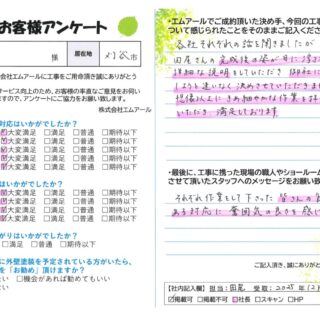 お客様アンケート
様
居住地
刈谷市
式会社エムアールに工事をご用命頂き誠にありがとう
サービス向上のため、お客様の率直なご意見をお伺い
ますので、アンケートにご協力をお願い致します。
株式会社エムアール
対応はいかがでしたか？
大変満足 □満足 □普通 □期待以下
大変満足 □満足 □普通 □期待以下
大変満足 □満足 □普通 □期待以下
大変満足 □満足 □普通 □期待以下
はいかがでしたか？
大変満足 □満足 □普通 □期待以下
大変満足 □満足 □普通 □期待以下
大変満足 □満足 □普通 □期待以下
がりはいかがでしたか？
足 □満足 □普通 □期待以下
に外壁塗装を予定されている方がいたら、
を「お勧め」頂けますか？
たい □機会があれば勧めてもいい
ない
・エムアールでご成約頂いた決め手、今回の工事
ついて感じられたことをそのままご記入ください
各社それぞれの話を聞きましたが
田尾さんの完成後の姿が目に浮
詳細な説明をしていただき 御社に
しようと違いなく決めさせていただきま
得後以上にきめ細やかな作業を
いただき 満足しております
・最後に、工事に携った現場の職人やショールーム
させて頂いたスタッフへのメッセージをお願い致
それぞれ作業をして下さった 皆さんの
ある対応に 雰囲気の良さを感じ
ご記入頂き、誠にありがと
【社内記入欄】 担当：田尾 受取：2025年12月
☑掲載可 □掲載不可 社長 □スキャン □HP